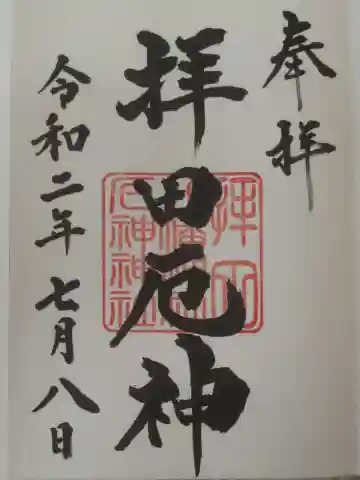 奉拝
拝田厄神
令和二年七月八日